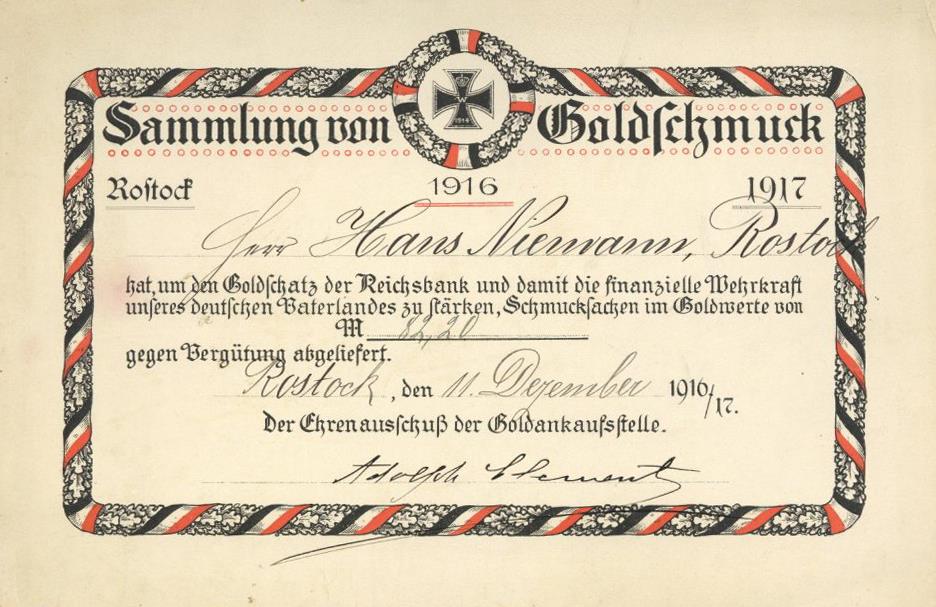 Sammlung von Goldschmuck
W
1914
Rostock 1916 1917
Herr Hans Niemann, Rostock
hat, um den Goldschatz der Reichsbank und damit die finanzielle Wehrkraft
unseres deutschen Vaterlandes zu stärken, Schmucksachen im Goldwerte von
M 82,20
gegen Vergütung abgeliefert.
Rostock, den 11. Dezember 1916/17.
Der Ehrenausschuß der Goldankaufsstelle.
Adolph Clement